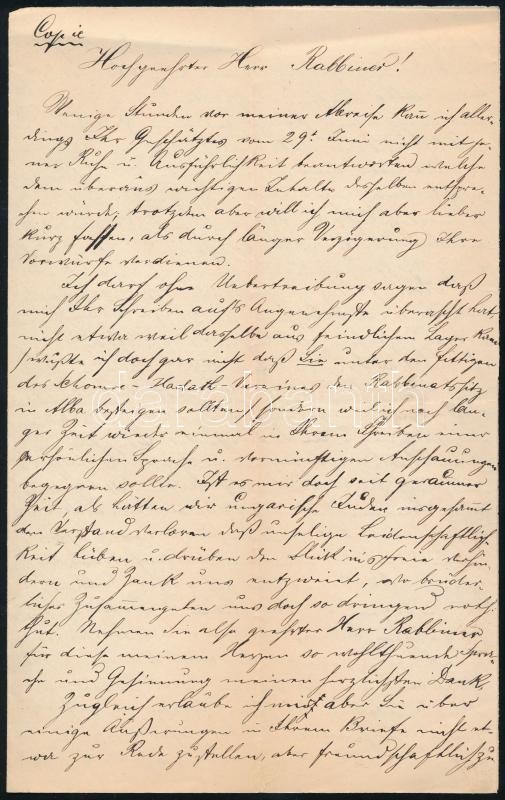 Copie
Hochgeehrter Herr Rabbiner!
Wenige Stunden vor meiner Abreise kann ich aller-
dings Ihr Geschätztes vom 29t Juni nicht mit je-
ner Ruhe u. Ausführlichkeit beantworten welche
dem überaus wichtigen Inhalte desselben entspre-
chen würde; trotzdem aber will ich mich aber lieber
kurz fassen, als durch länger Verzögerung Ihre
Vorwürfe verdienen.
Ich darf ohne Uebertreibung sagen daß
mich Ihr Schreiben auf's Angenehmste überrascht hat,
nicht etwa weil dasselbe aus feindlichem Lager kam
/wußte ich doch gar nicht daß Sie unter den Fittigen
des Schomre-Hadath-Vereines den Rabbinatssitz
in Alba besteigen sollten/ sondern weil ich nach lan-
ger Zeit wieder einmal in Ihrem Schreiben einer
persönlichen Sprache u. vernünftigen Anschauungen
begegnen sollte. Ist es mir doch seit geraumer
Zeit, als hätten wir ungarische Juden insgesammt
den Verstand verloren daß unselige Leidenschaftlich
keit hüben u. drüben den Blick in's Freie verhin-
dern und Zank uns entzweit, wo brüder-
liches Zusammengehen uns doch so dringend noth
thut. Nehmen Sie also geehrter Herr Rabbiner
für diese meinem Herzen so wohlthuende Spra-
che und Gesinnung meinen herzlichsten Dank.
Zugleich erlaube ich mir aber Sie über
einige Äußerungen in Ihrem Briefe nicht et-
wa zur Rede zu stellen, aber freundschaftlich zu
darabanth